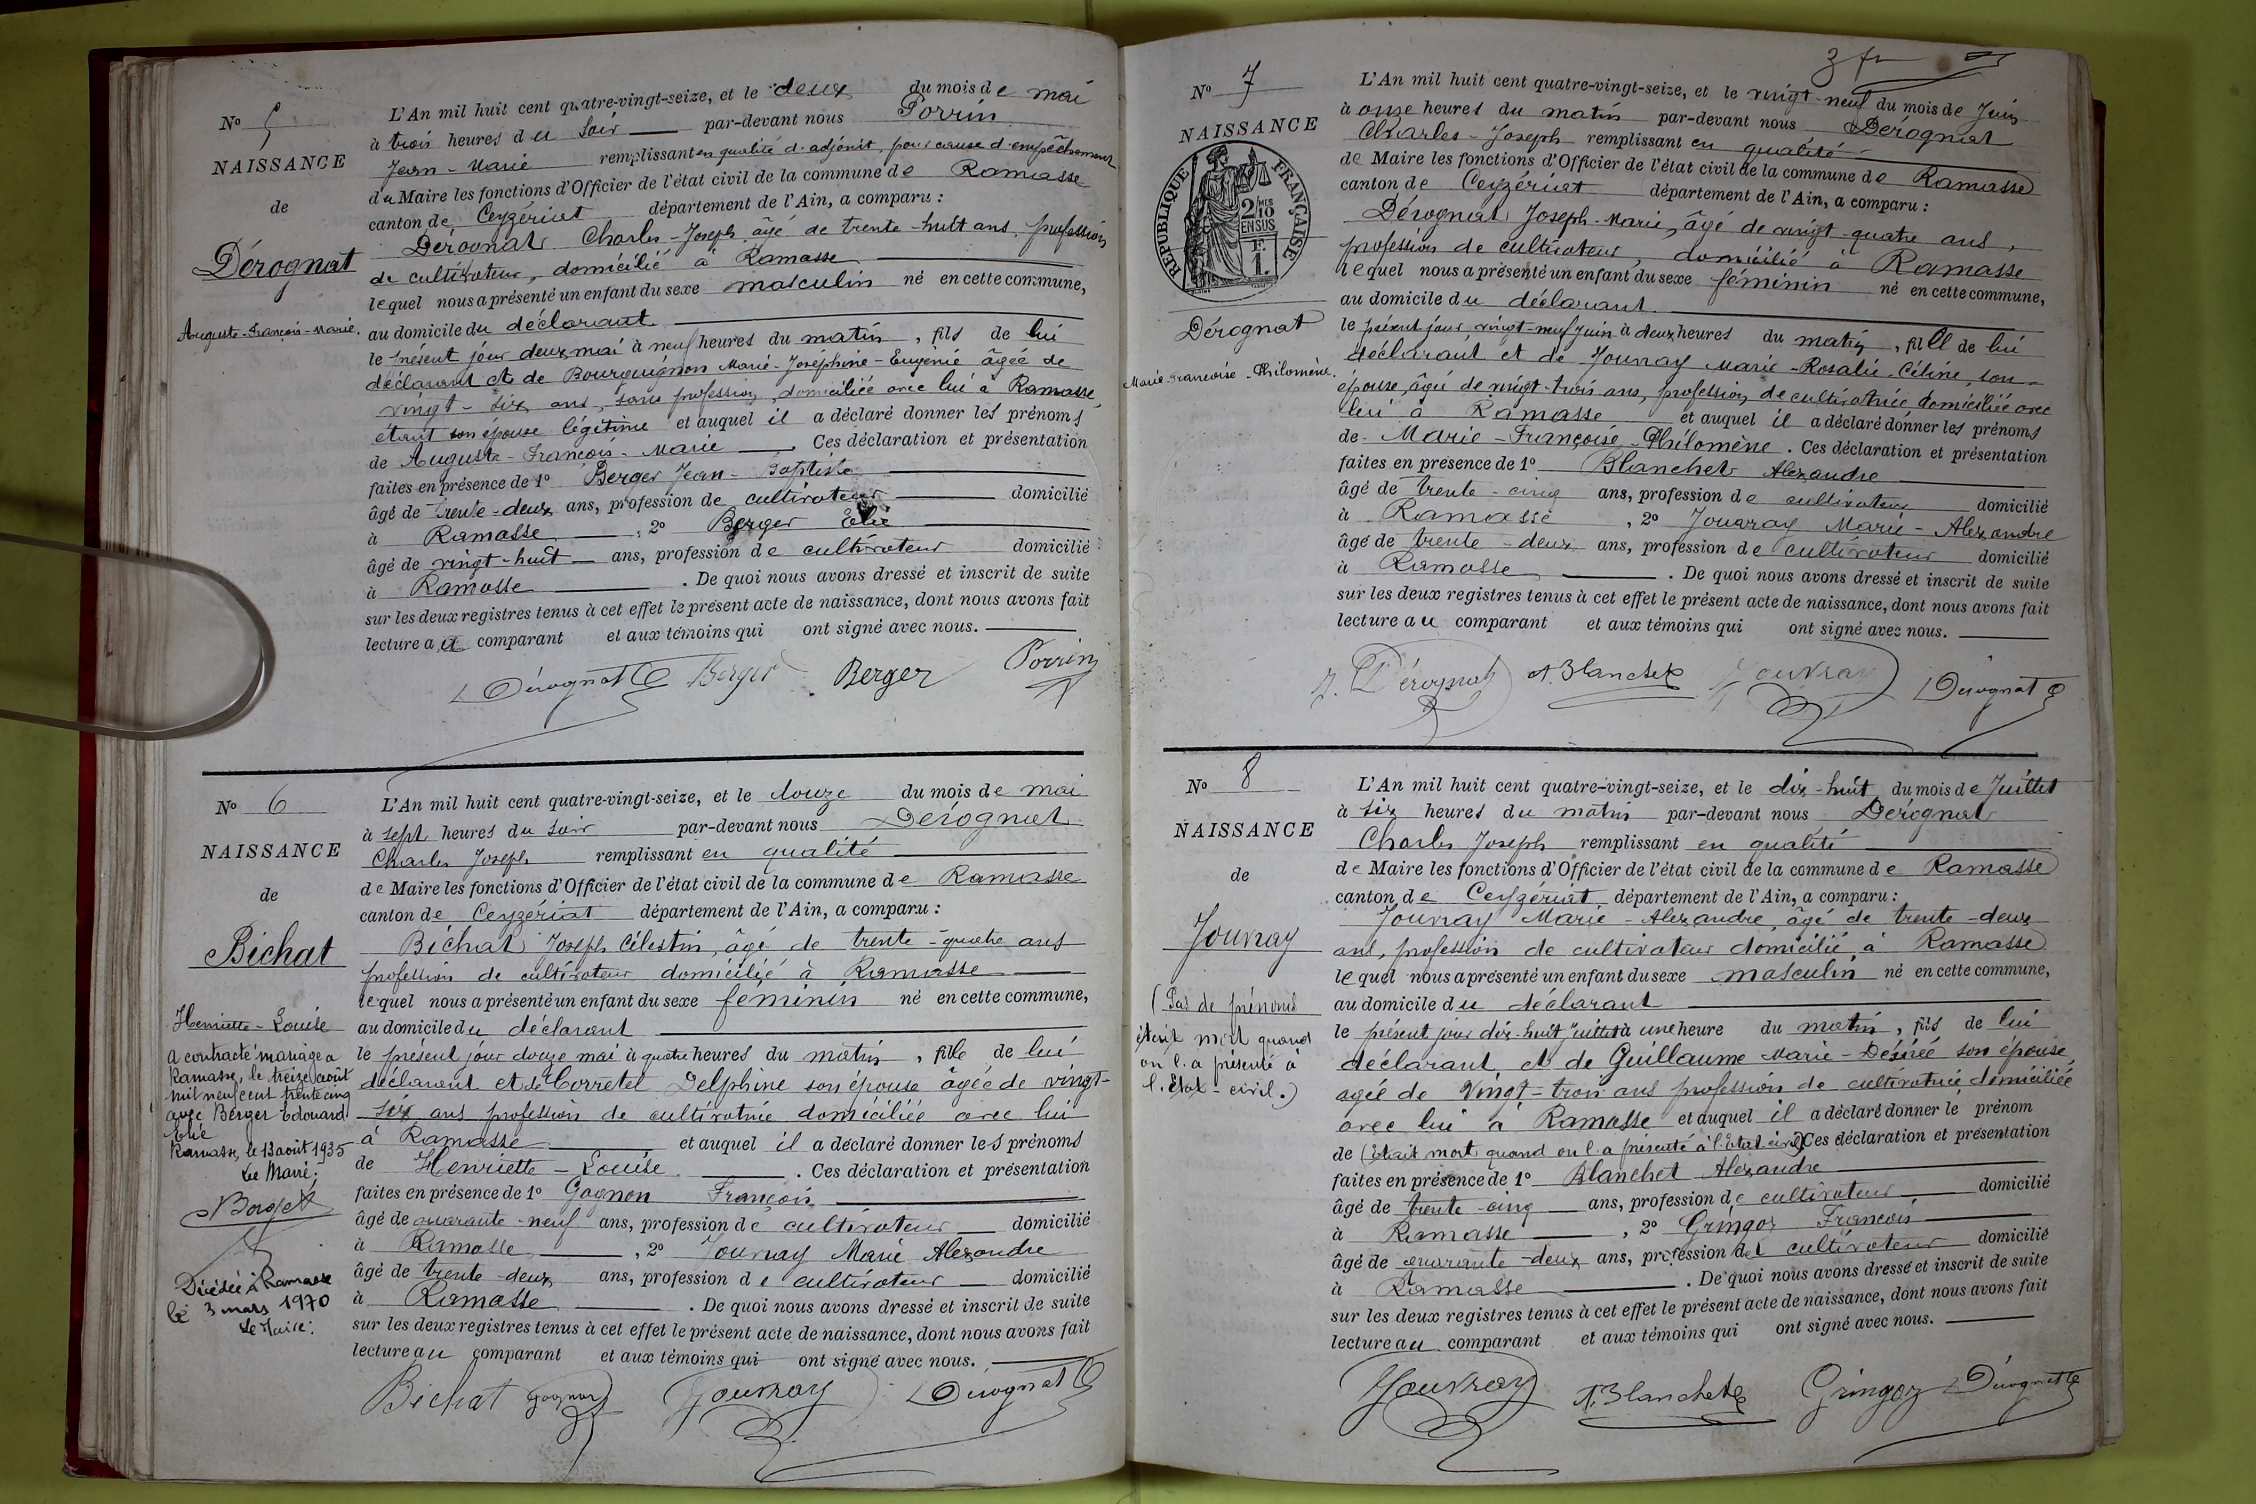 No 5
NAISSANCE
de
Dérognat
Auguste-François-Marie.
L'An mil huit cent quatre-vingt-seize, et le deux du mois de mai
à trois heures du soir par-devant nous Porrin
Jean-Marie remplissant en qualité d'adjoint, pour cause d'empêchement
du Maire les fonctions d'Officier de l'état civil de la commune de Ramasse
canton de Ceyzériat département de l'Ain, a comparu :
Dérognat Charles-Joseph âgé de trente-huit ans, profession
de cultivateur, domicilié à Ramasse
lequel nous a présenté un enfant du sexe masculin né en cette commune,
au domicile du déclarant
le présent jour deux mai à neuf heures du matin, fils de lui
déclarant et de Bourguignon Marie-Joséphine-Eugénie âgée de
vingt-six ans, sans profession, domiciliée avec lui à Ramasse,
étant son épouse légitime et auquel il a déclaré donner les prénoms
de Auguste-François-Marie. Ces déclaration et présentation
faites en présence de 1o Berger Jean-Baptiste
âgé de trente-deux ans, profession de cultivateur domicilié
à Ramasse, 2o Berger Elie
âgé de vingt-huit ans, profession de cultivateur domicilié
à Ramasse. De quoi nous avons dressé et inscrit de suite
sur les deux registres tenus à cet effet le présent acte de naissance, dont nous avons fait
lecture au comparant et aux témoins qui ont signé avec nous.
Dérognat Berger Berger Porrin
No 6
NAISSANCE
de
Bichat
Henriette-Louise
a contracté mariage à
Ramasse, le treize août
mil neuf cent trente cinq
avec Berger Edouard
Elie
Ramasse, le 13 août 1935
Le Maire:
Décédée à Ramasse
le 3 mars 1970
Le Maire:
L'An mil huit cent quatre-vingt-seize, et le douze du mois de mai
à sept heures du soir par-devant nous Dérognat
Charles Joseph remplissant en qualité
de Maire les fonctions d'Officier de l'état civil de la commune de Ramasse
canton de Ceyzériat département de l'Ain, a comparu :
Bichat Joseph Célestin, âgé de trente-quatre ans
profession de cultivateur domicilié à Ramasse
lequel nous a présenté un enfant du sexe féminin né en cette commune,
au domicile du déclarant
le présent jour douze mai à quatre heures du matin, fille de lui
déclarant et de Corretel Delphine son épouse âgée de vingt-
six ans profession de cultivatrice domiciliée avec lui
à Ramasse et auquel il a déclaré donner les prénoms
de Henriette-Louise. Ces déclaration et présentation
faites en présence de 1o Gagnon François
âgé de quarante-neuf ans, profession de cultivateur domicilié
à Ramasse, 2o Jouvray Marie Alexandre
âgé de trente-deux ans, profession de cultivateur domicilié
à Ramasse. De quoi nous avons dressé et inscrit de suite
sur les deux registres tenus à cet effet le présent acte de naissance, dont nous avons fait
lecture au comparant et aux témoins qui ont signé avec nous.
Bichat Gagnon Jouvray Dérognat
No 7
NAISSANCE
RÉPUBLIQUE FRANÇAISE
2/10 MES
EN SUS
F.
1.
Dérognat
Marie-Françoise-Philomène.
L'An mil huit cent quatre-vingt-seize, et le vingt-neuf du mois de Juin
à onze heures du matin par-devant nous Dérognat
Charles-Joseph remplissant en qualité
de Maire les fonctions d'Officier de l'état civil de la commune de Ramasse
canton de Ceyzériat département de l'Ain, a comparu :
Dérognat Joseph-Marie, âgé de vingt-quatre ans,
profession de cultivateur, domicilié à Ramasse
lequel nous a présenté un enfant du sexe féminin né en cette commune,
au domicile du déclarant
le présent jour vingt-neuf Juin à deux heures du matin, fille de lui
déclarant et de Jouvray Marie-Rosalie-Céline, son
épouse, âgée de vingt-trois ans, profession de cultivatrice domiciliée avec
lui à Ramasse et auquel il a déclaré donner les prénoms
de Marie-Françoise-Philomène. Ces déclaration et présentation
faites en présence de 1o Blanchet Alexandre
âgé de trente-cinq ans, profession de cultivateur domicilié
à Ramasse, 2o Jouvray Marie-Alexandre
âgé de trente-deux ans, profession de cultivateur domicilié
à Ramasse. De quoi nous avons dressé et inscrit de suite
sur les deux registres tenus à cet effet le présent acte de naissance, dont nous avons fait
lecture au comparant et aux témoins qui ont signé avec nous.
J. Dérognat A. Blanchet Jouvray Dérognat
No 8
NAISSANCE
de
Jouvray
(Pas de prénoms
était mort quand
on l'a présenté à
l'État-civil.)
L'An mil huit cent quatre-vingt-seize, et le dix-huit du mois de Juillet
à six heures du matin par-devant nous Dérognat
Charles Joseph remplissant en qualité
de Maire les fonctions d'Officier de l'état civil de la commune de Ramasse
canton de Ceyzériat département de l'Ain, a comparu :
Jouvray Marie-Alexandre, âgé de trente-deux
ans, profession de cultivateur domicilié à Ramasse
lequel nous a présenté un enfant du sexe masculin né en cette commune,
au domicile du déclarant
le présent jour dix-huit Juillet à une heure du matin, fils de lui
déclarant et de Guillaume Marie-Désirée son épouse
agée de vingt-trois ans profession de cultivatrice domiciliée
avec lui à Ramasse et auquel il a déclaré donner le prénom
de (était mort quand on l'a présenté à l'État civil) Ces déclaration et présentation
faites en présence de 1o Blanchet Alexandre
âgé de trente-cinq ans, profession de cultivateur domicilié
à Ramasse, 2o Gringoz François
âgé de quarante-deux ans, profession de cultivateur domicilié
à Ramasse. De quoi nous avons dressé et inscrit de suite
sur les deux registres tenus à cet effet le présent acte de naissance, dont nous avons fait
lecture au comparant et aux témoins qui ont signé avec nous.
Jouvray A. Blanchet Gringoz Dérognat